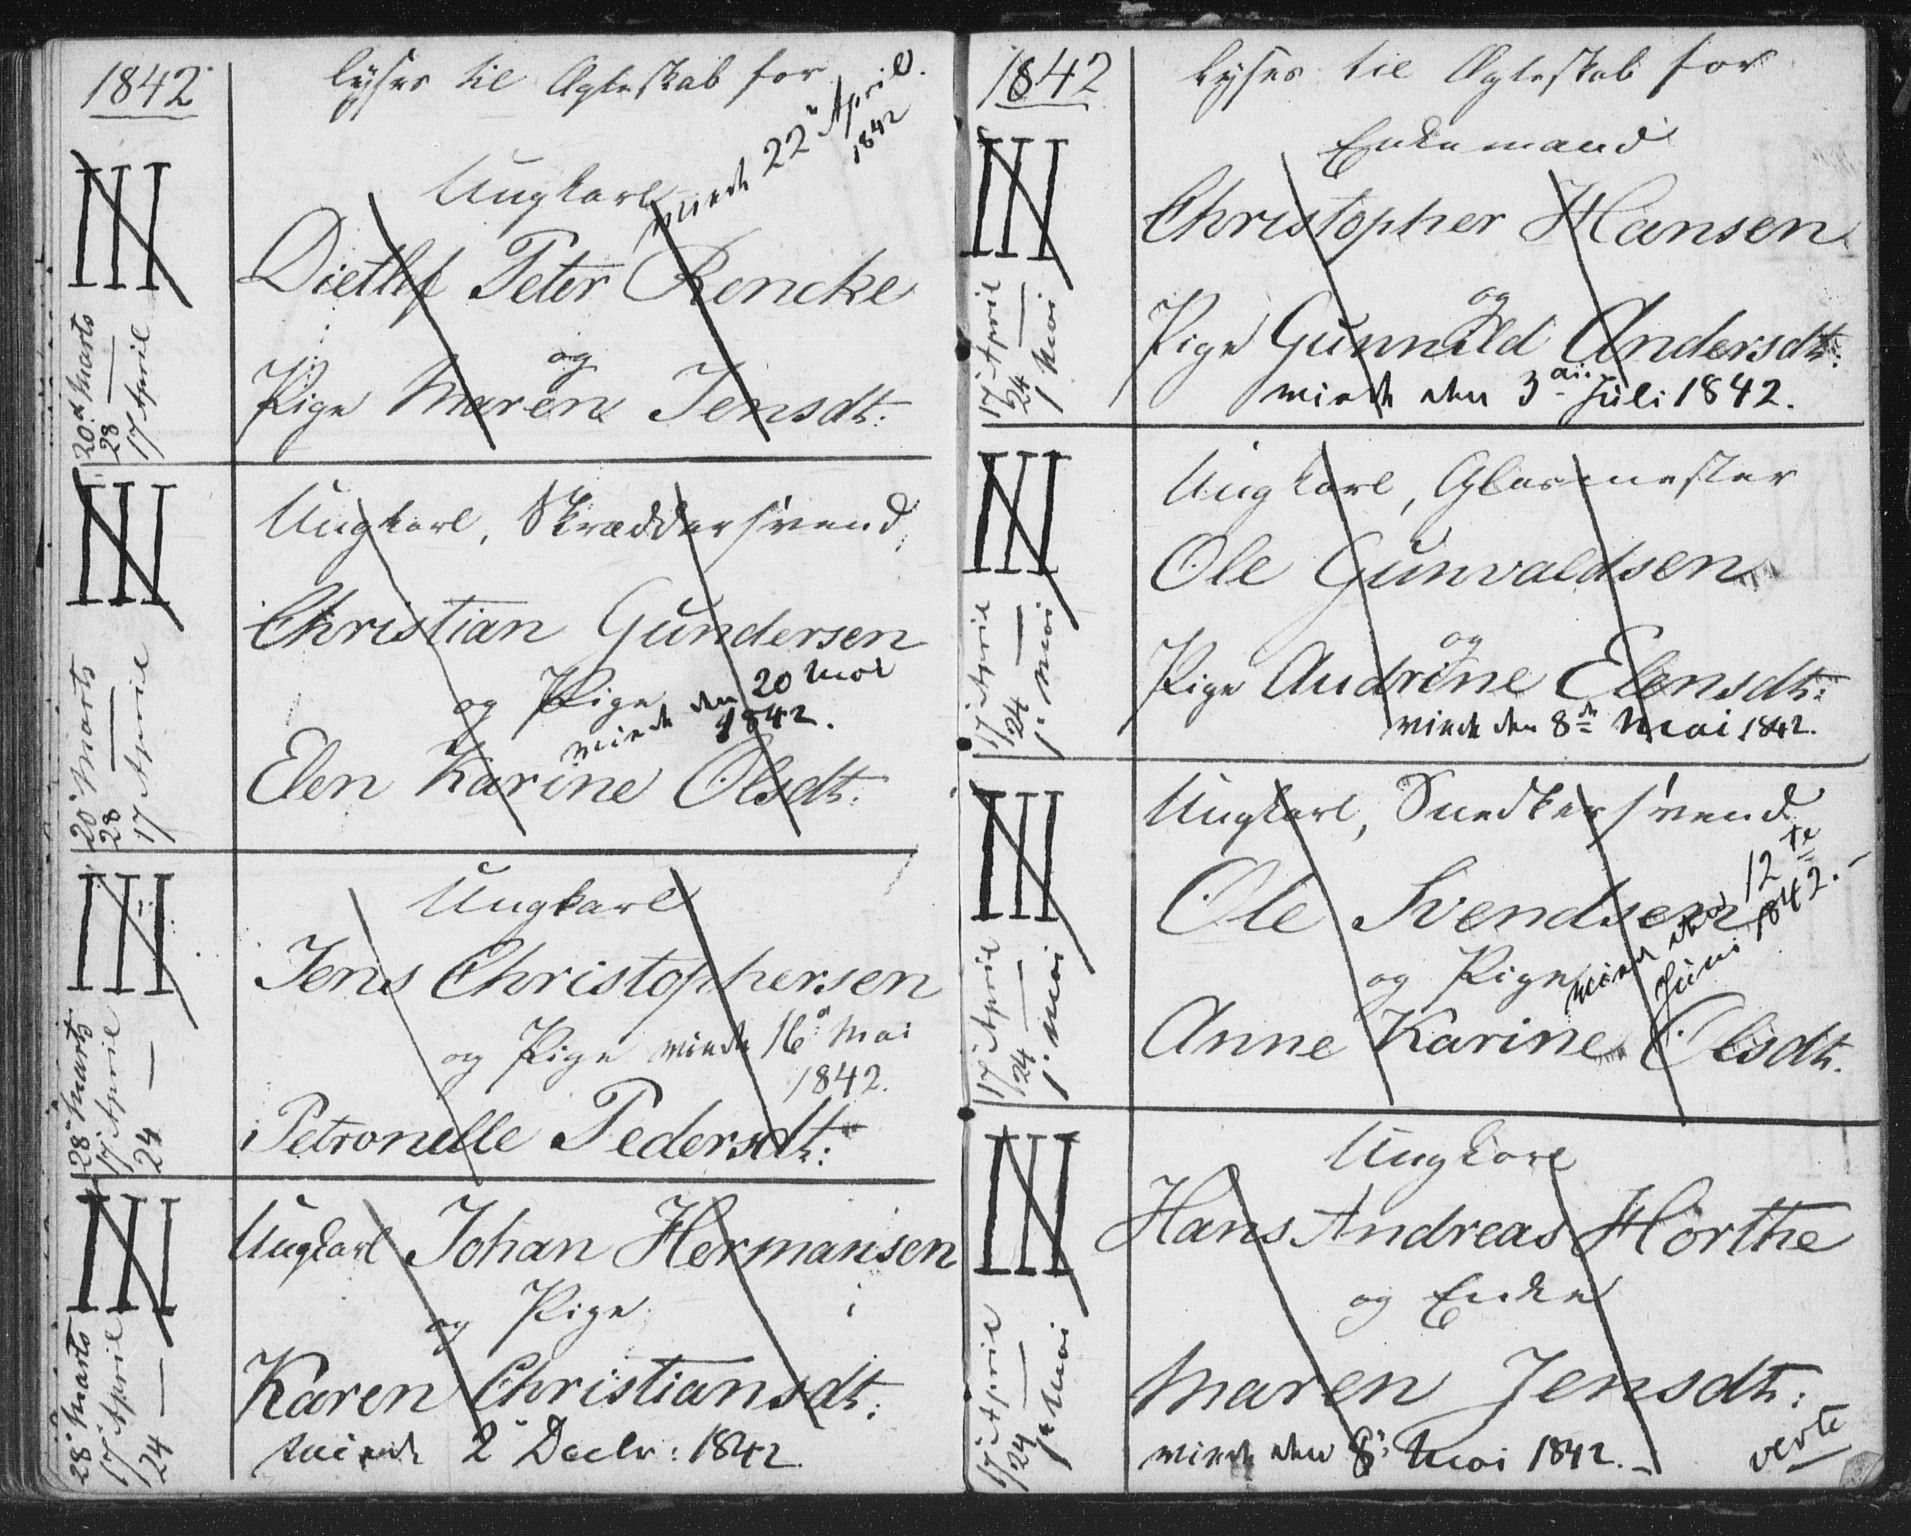 1842
lyses til Ægteskab for
Ungkarl
viede 22 April
1842
Dietlef Peter Rencke
og
Pige Maren Jensdt:
III
20de Marts
28 —
17 April
Ungkarl, Skræddersvend
Christian Gundersen
og Pige
viede den 20 Mai
1842.
Elen Karine Olsdt:
III
20 Marts
28 —
17 April
Ungkarl
Jens Christophersen
og Pige viede 16 Mai
1842.
Petronelle Pedersdt:
III
28 Marts
17 April
24 —
Ungkarl Johan Hermansen
og Pige
Karen Christiansdt:
viede 2 Decbr: 1842
III
28 Marts
17 April
24 —
1842
lyses til Ægteskab for
Enkemand
Christopher Hansen
og
Pige Gunnild Andersdt:
viede den 3die Juli 1842.
III
17 April
24 —
1 Mai
Ungkarl, Glasmester
Ole Gunvaldsen
og
Pige Andrine Elensdt:
viede den 8de Mai 1842.
III
17 April
24 —
1. Mai
Ungkarl, Snedkersvend
Ole Svendsen
og Pige
viede den 12te
Juni 1842.
Anne Karine Olsdt.
III
17 April
24 —
1. Mai
Ungkarl
Hans Andreas Hörthe
og Enke
Maren Jensdt:
viede den 8: Mai 1842.
verte
III
17 April
24 —
1ste Mai